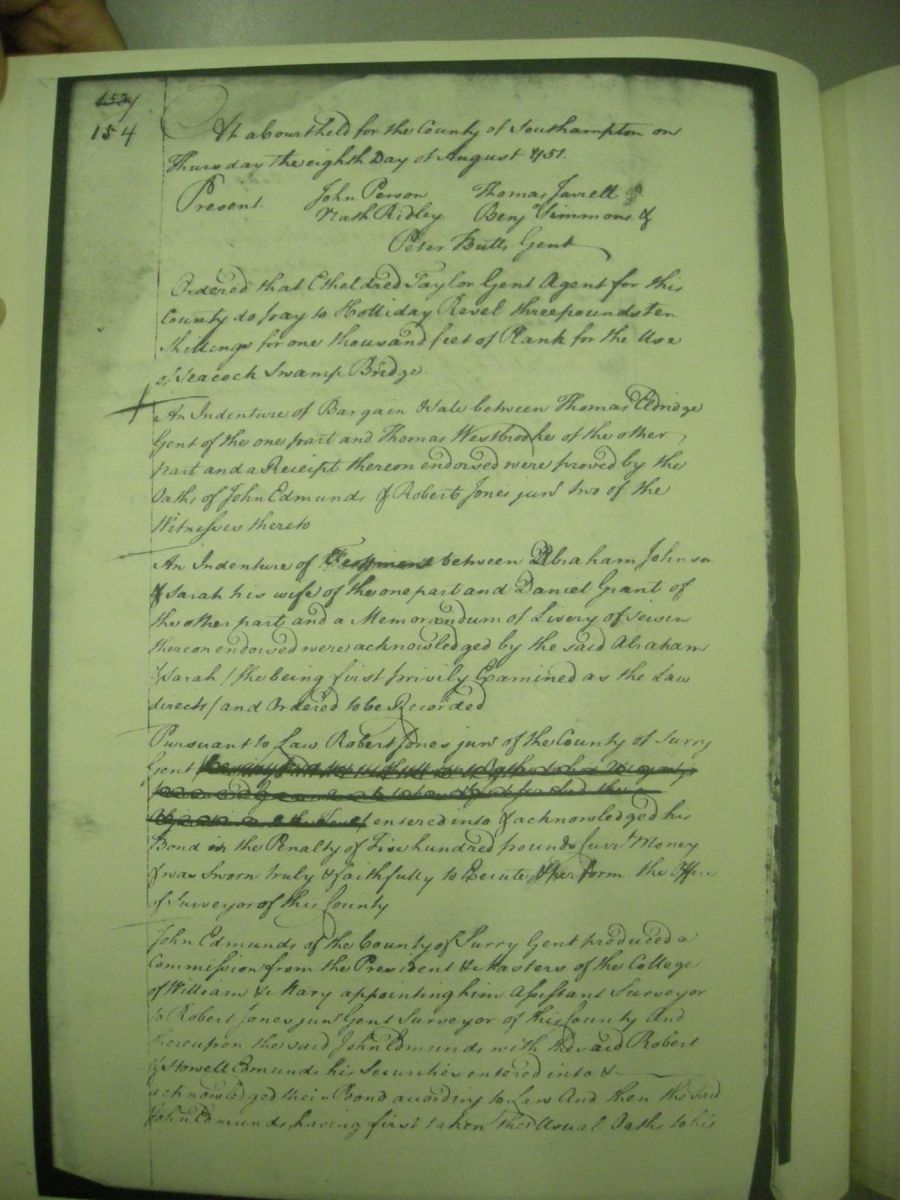 154
At a Court held for the County of Southampton on
Thursday the eighth Day of August 1751.
Present John Person Thomas Jarrell
Nath Ridley Benj Simmons &
Peter Butts Gent
Ordered that Etheldred Taylor Gent Agent for this
County do pay to Holliday Revel three pounds ten
Shillings for one thousand feet of Plank for the Use
of Seacock Swamp Bridge
An Indenture of Bargain & Sale between Thomas Eldridge
Gent of the one part and Thomas Westbrooke of the other
part and a Receipt thereon endorsed were proved by the
Oaths of John Edmunds & Robert Jones junr two of the
Witnesses thereto
An Indenture of Feoffment between Abraham Johnson
& Sarah his wife of the one part and Daniel Grant of
the other part and a Memorandum of Livery of seisin
thereon endorsed were acknowledged by the said Abraham
& Sarah / she being first privily Examined as the Law
directs / and Ordered to be Recorded
Pursuant to Law Robert Jones junr of the County of Surry
Gent
entered into & acknowledged his
Bond in the Penalty of Five hundred pounds Currt Money
& was Sworn truly & faithfully to Execute & perform the Office
of Surveyor of this County
John Edmunds of the County of Surry Gent produced a
Commission from the President & Masters of the College
of William & Mary appointing him Assistant Surveyor
to Robert Jones junr Gent Surveyor of this County And
thereupon the said John Edmunds with the said Robert
& Howell Edmunds his Securities entered into &
acknowledged their Bond according to Law And then the said
John Edmunds, having first taken the Usual Oaths to his